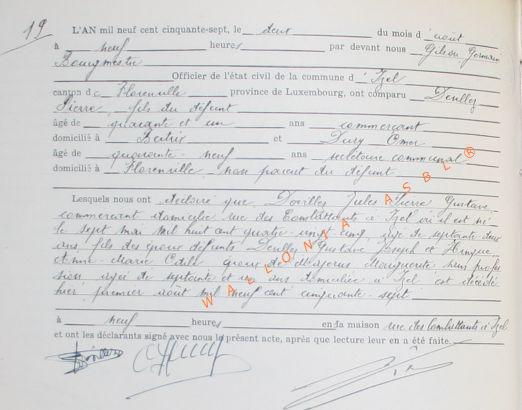 19
L'AN mil neuf cent cinquante-sept, le deux du mois d'août
à neuf heures par devant nous Gilson Germain
Bourgmestre
Officier de l'état civil de la commune d'Izel
canton de Florenville province de Luxembourg, ont comparu
Pierre, fils du défunt
âgé de quarante et un ans commerçant
domicilié à Bertrix et Omer
âgé de quarante-neuf ans secrétaire communal
domicilié à Florenville non parent du défunt
Lesquels nous ont déclaré que Jules Pierre Gustave
commerçant domicilié rue des Combattants à Izel où il est né
le sept mai mil huit cent quatre-vingt cinq, âgé de septante deux
ans, fils des époux défunts Gustave Joseph et
Marie époux de Marguerite, sans profes
sion âgée de septante et un ans domiciliée à Izel est décédé
hier premier août mil neuf cent cinquante-sept
à neuf heures en la maison rue des Combattants à Izel
et ont les déclarants signé avec nous le présent acte, après que lecture leur en a été faite.
WALLONIA ASBL ®